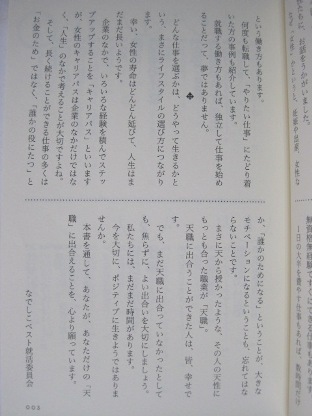 という働き方もあります。
何度も転職して、「やりたい仕事」にたどり着
いた方の事例も紹介しています。
就職する働き方もあれば、独立して仕事を始め
ることだって、夢ではありません。
どんな仕事を選ぶかは、どうやって生きるかと
いう、まさにライフスタイルの選び方につながり
ます。
幸い、女性の寿命はどんどん延びて、人生はま
だまだ長いようです。
企業のなかで、いろいろな経験を積んでステッ
プアップすることを「キャリアパス」といいます
が、女性のキャリアパスは企業のなかだけではな
く、「人生」のなかで考えることが大切ですよね。
そして、長く続けることができる仕事の多くは
「お金のため」ではなく、「誰かの役にたつ」と
か、「誰かのためになる」ということが、大きな
モチベーションになるということも、忘れてはな
らないことです。
まさに天から授かったような、その人の天性に
もっとも合った職業が「天職」。
天職に出合うことができた人は、皆、幸せで
す。
でも、まだ天職に出合っていなかったとして
も、焦らずに、よい出合いを大切にしましょう。
私たちには、まだまだ時間があります。
今を大切に、ポジティブに生きようではありま
せんか。
本書を通して、あなたが、あなただけの「天
職」に出合えることを、心より願っています。
なでしこベスト就活委員会
003